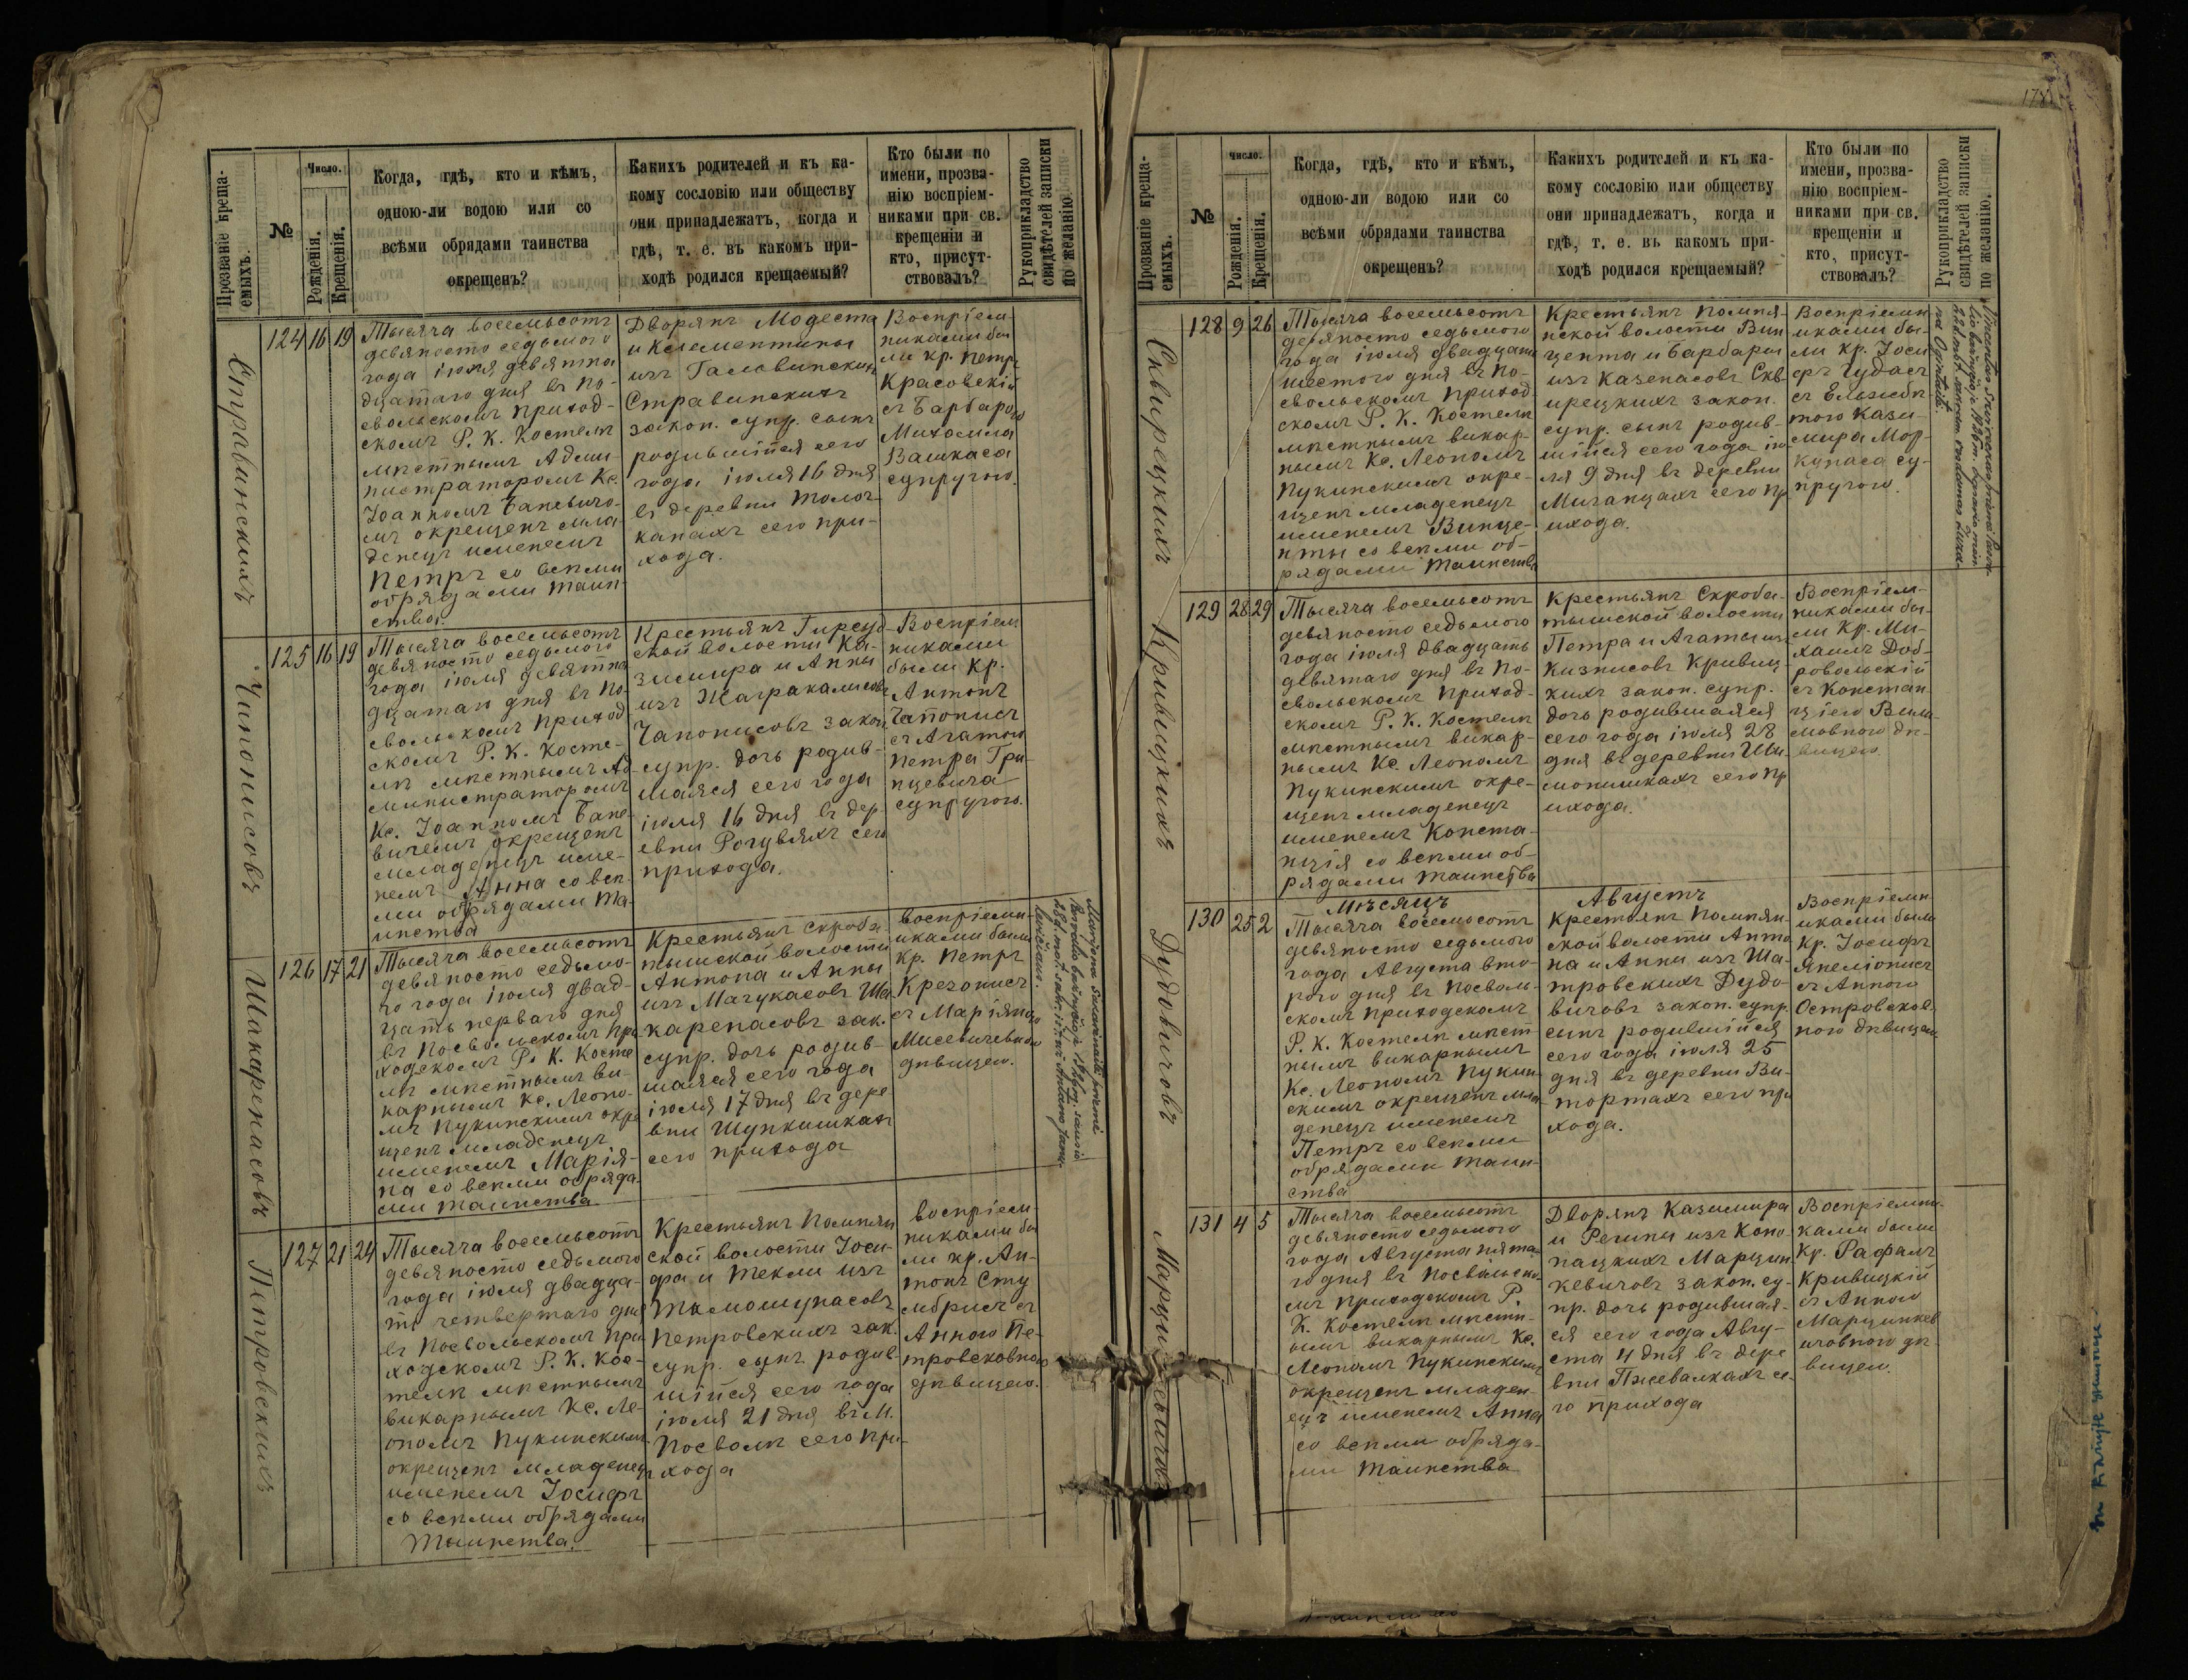 Прозваніе креща-
емыхъ.
№
Число.
Рожденія.
Крещенія.
Когда, гдѣ, кто и кѣмъ,
одною-ли водою или со
всѣми обрядами таинства
окрещенъ?
Каихъ родителей и къ ка-
кому сословію или обществу
они принадлежатъ, когда и
гдѣ, т. е. въ какомъ при-
ходѣ родился крещаемый?
Кто были по
имени, прозва-
нію воспріем-
никами при св.
крещеніи и
кто, присут-
ствовалъ?
Рукоприкладство
свидѣтелей записки
по желанію.
Стравинскихъ
124 16 19
Тысяча восемьсотъ
девяносто седьмого
года іюля девятна
дцатаго дня въ По-
свольскомъ приход-
скомъ Р. К. Костелѣ
мѣстнымъ Адми-
нистраторомъ Кс.
Іоанномъ Баневиче-
мъ окрещенъ мла-
денецъ именемъ
Петръ со всѣми
обрядами Таин-
ства.
Дворянъ Модеста
и Клементины
изъ Галовинскихъ
Стравинскихъ
закон. супр. сынъ
родившійся сего
года іюля 16 дня
въ деревни Толоч-
канахъ сего при-
хода.
Воспріем-
никами бы
ли кр. Петръ
Красовскій
съ Барбарою
Михаила
Вашкаса
супругою.
Чапонисовъ
125 16 19
Тысяча восемьсотъ
девяносто седьмого
года іюля девятна
дцатаго дня въ По-
свольскомъ приход
скомъ Р. К. Косте-
лѣ мѣстнымъ Ад-
министраторомъ
Кс. Іоанномъ Бане-
вичемъ окрещенъ
младенецъ име-
немъ Анна со всѣ-
ми обрядами Та-
инства
Крестьянъ Гирсуд-
ской волости Ка-
зимира и Анны
изъ Жагракалисовъ
Чапонисовъ закон
супр. дочь родив-
шаяся сего года
іюля 16 дня въ дер
евни Рогувяхъ сего
прихода.
Воспріем
никами
были кр.
Антонъ
Чапонисъ
съ Агатою
Петра Гри-
нцевича
супругою.
Шакаренасовъ
126 17 21
Тысяча восемьсотъ
девяносто седьмо-
го года іюля двад-
цать перваго дня
въ Посвольскомъ при
ходскомъ Р. К. Косте
лѣ мѣстнымъ ви-
карнымъ Кс. Леоно-
мъ Пукинскимъ окре
щенъ младенецъ
именемъ Марія-
на со всѣми обряда-
ми таинства
Крестьянъ Скроба-
тышской волости
Антона и Анны
изъ Мачукасовъ Ша-
каренасовъ зак.
супр. дочь родив-
шаяся сего года
іюля 17 дня въ дере
вни Шункишкахъ
сего прихода
Воспріемн-
иками были
кр. Петръ
Крезонисъ
съ Маріяною
Мисевичевною
дѣвицею.
Петровскихъ
127 21 24
Тысяча восемьсотъ
девяносто седьмого
года іюля двадца-
ть четвертаго дня
въ Посвольскомъ при
ходскомъ Р. К. Кос-
телѣ мѣстнымъ
викарнымъ Кс. Ле-
ономъ Пукинскимъ
окрещенъ младенецъ
именемъ Іосифъ
со всѣми обрядами
Таинства.
Крестьянъ Помпян
ской волости Іоси-
фа и Текли изъ
Тамошунасовъ
Петровскихъ зак.
супр. сынъ родив-
шійся сего года
іюля 21 дня въ м.
Посволѣ сего при-
хода
Воспріем-
никами бы
ли кр. Ан-
тонъ Сту
мбрисъ съ
Анною Пе-
тровсковною
дѣвицею.
178
Прозваніе креща-
емыхъ.
№
Число.
Рожденія.
Крещенія.
Когда, гдѣ, кто и кѣмъ,
одною-ли водою или со
всѣми обрядами таинства
окрещенъ?
Какихъ родителей и къ ка-
кому сословію или обществу
они принадлежатъ, когда и
гдѣ, т. е. въ какомъ при-
ходѣ родился крещаемый?
Кто были по
имени, прозва-
нію воспріем-
никами при св.
крещеніи и
кто, присут-
ствовалъ?
Рукоприкладство
свидѣтелей записки
по желанію.
Сквирецкихъ
128 9 26
Тысяча восемьсотъ
девяносто седьмого
года іюля двадцать
шестого дня въ По-
свольскомъ приход
скомъ Р. К. Костелѣ
мѣстнымъ викар-
нымъ Кс. Леономъ
Пукинскимъ окре-
щенъ младенецъ
именемъ Винце-
нты со всѣми об-
рядами таинства
Крестьянъ Помпя-
нской волости Вин
цента и Барбары
изъ Казенасовъ Скв-
ирецкихъ закон.
супр. сынъ родив-
шійся сего года ію
ля 9 дня въ деревни
Мичанцахъ сего пр
ихода.
Воспріемн
иками бы-
ли кр. Іоси
фъ Чудасъ
съ Ельжбѣ-
тою Кази-
мира Мор-
кунаса су-
пругою.
Кривицкихъ
129 28 29
Тысяча восемьсотъ
девяносто седьмого
года іюля двадцать
девятаго дня въ По-
свольскомъ приход-
скомъ Р. К. Костелѣ
мѣстнымъ викар-
нымъ Кс. Леономъ
Пукинскимъ окре-
щенъ младенецъ
именемъ Конста-
нція со всѣми об-
рядами таинства
Крестьянъ Скроба-
тышской волости
Петра и Агаты изъ
Кизнисовъ Кривиц-
кихъ закон. супр.
дочь родившаяся
сего года іюля 28
дня въ деревни Ши-
монишкахъ сего пр
ихода.
Воспріем-
никами бы-
ли Кр. Ми-
хаилъ Доб-
ровольскій
съ Констан
ціею Вили-
мовною дѣ-
вицею.
Мѣсяцъ Августъ
Дудовичовъ
130 25 2
Тысяча восемьсотъ
девяносто седьмого
года Августа вто-
рого дня въ Посволь-
скомъ приходскомъ
Р. К. Костелѣ мѣст-
нымъ викарнымъ
Кс. Леономъ Пукин-
скимъ окрещенъ мла-
денецъ именемъ
Петръ со всѣми
обрядами таин-
ства
Крестьянъ Помпян-
ской волости Анто
на и Анны изъ Ша-
тровскихъ Дудо-
вичовъ закон. супр.
сынъ родившійся
сего года іюля 25
дня въ деревни Ви-
тортахъ сего при
хода.
Воспріемн
иками были
кр. Іосифъ
Янеліонисъ
съ Анною
Островсков-
ною дѣвицею.
131 4 5
Тысяча восемьсотъ
девяносто седьмого
года Августа пята-
го дня въ Посвольско-
мъ приходскомъ Р.
К. Костелѣ мѣстн-
ымъ викарнымъ Кс.
Леономъ Пукинскимъ
окрещенъ младен-
ецъ именемъ Анна
со всѣми обряда-
ми таинства
Дворянъ Казимира
и Регины изъ Коно-
пацкихъ Марцин
кевичовъ закон. су-
пр. дочь родившая-
ся сего года Авгу-
ста 4 дня въ дере
вни Пжевалкахъ се-
го прихода
Воспріемни-
ками были
кр. Рафалъ
Кривицкій
съ Анною
Марцинкев
ичовною дѣ-
вицею.